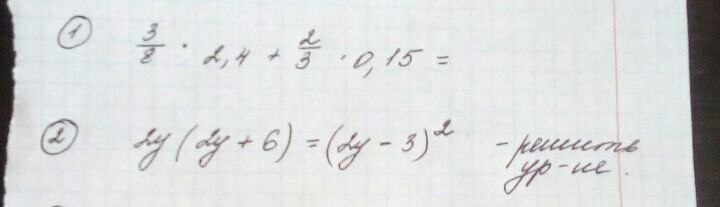 ① 3/8 · 2,4 + 2/3 · 0,15 =
② 2y(2y+6) = (2y-3)² - решить
ур-ие.